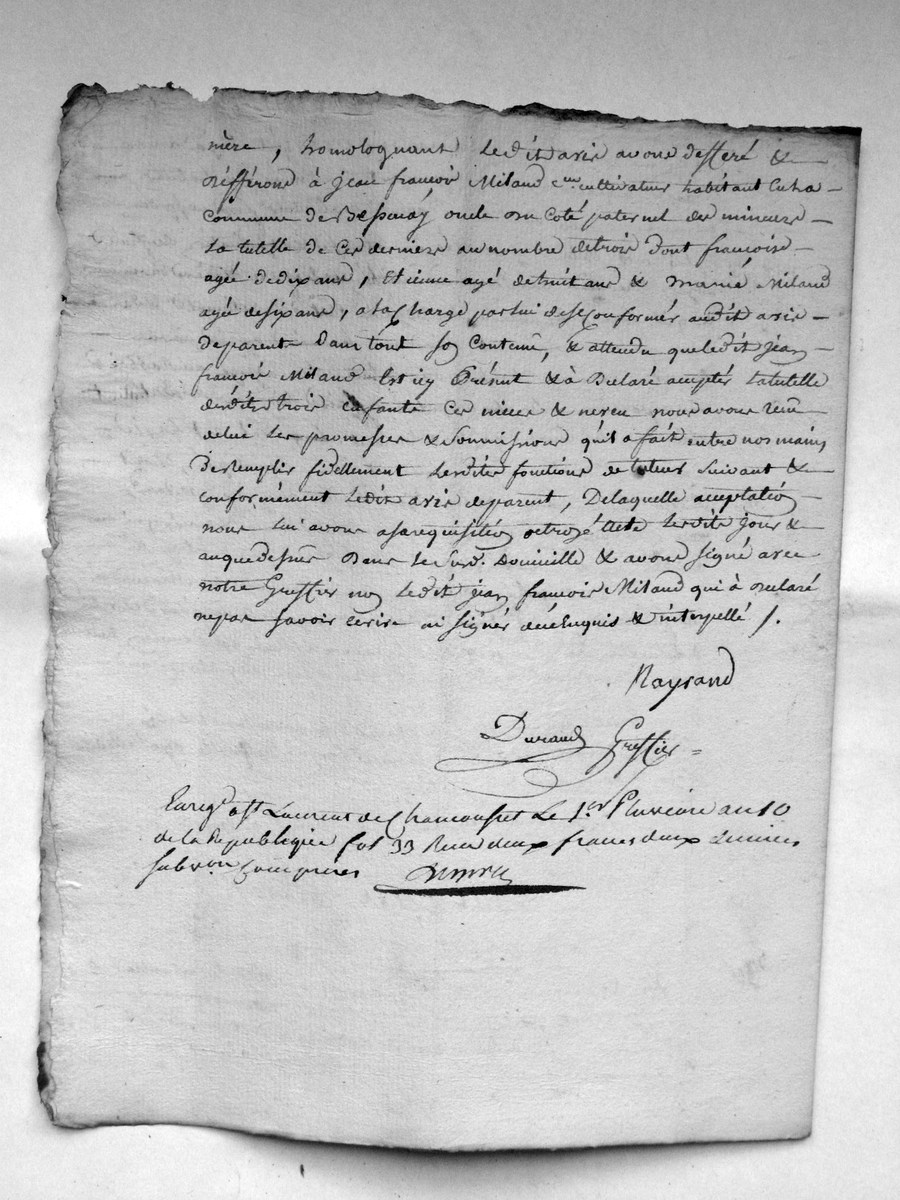 mère, homologuant ledit avis avons defferé &
défférons à jean françois Miland cen. cultivateur habitant en la
commune de Bessenay, oncle du coté paternel des mineurs
la tutelle de ces derniers au nombre de trois dont françoise
agée de dix ans, Etienne agé de huit ans & marie Miland
agée de six ans, a la Charge par lui de se conformer audit avis
de parents dans tout son contenu, & attendu que ledit jean
françois Miland Est icy Présent & à Déclaré accepter la tutelle
desdits trois enfants ces nieces & neveu nous avons reçu
de lui les promesses & Soumissions quil a fait entre nos mains
de remplir fidellement lesdites fonctions de tuteur suivant &
conformément ledit avis de parent, De laquelle acceptation
nous lui avons a sa requisition octroyé acte lesdits jour &
an que dessus Dans le susd. Domicille & avons signé avec
notre Greffier non ledit jean françois Miland qui à declaré
ne pas savoir ecrire ni signer de ce Enquis & interpellé /.
Mayrand
Durand Greffier
Enregt. a St. Laurent de Chamousset le 1er Pluviose an 10
de la Republique fol 33 Recu deux francs deux decimes
subvon comprises